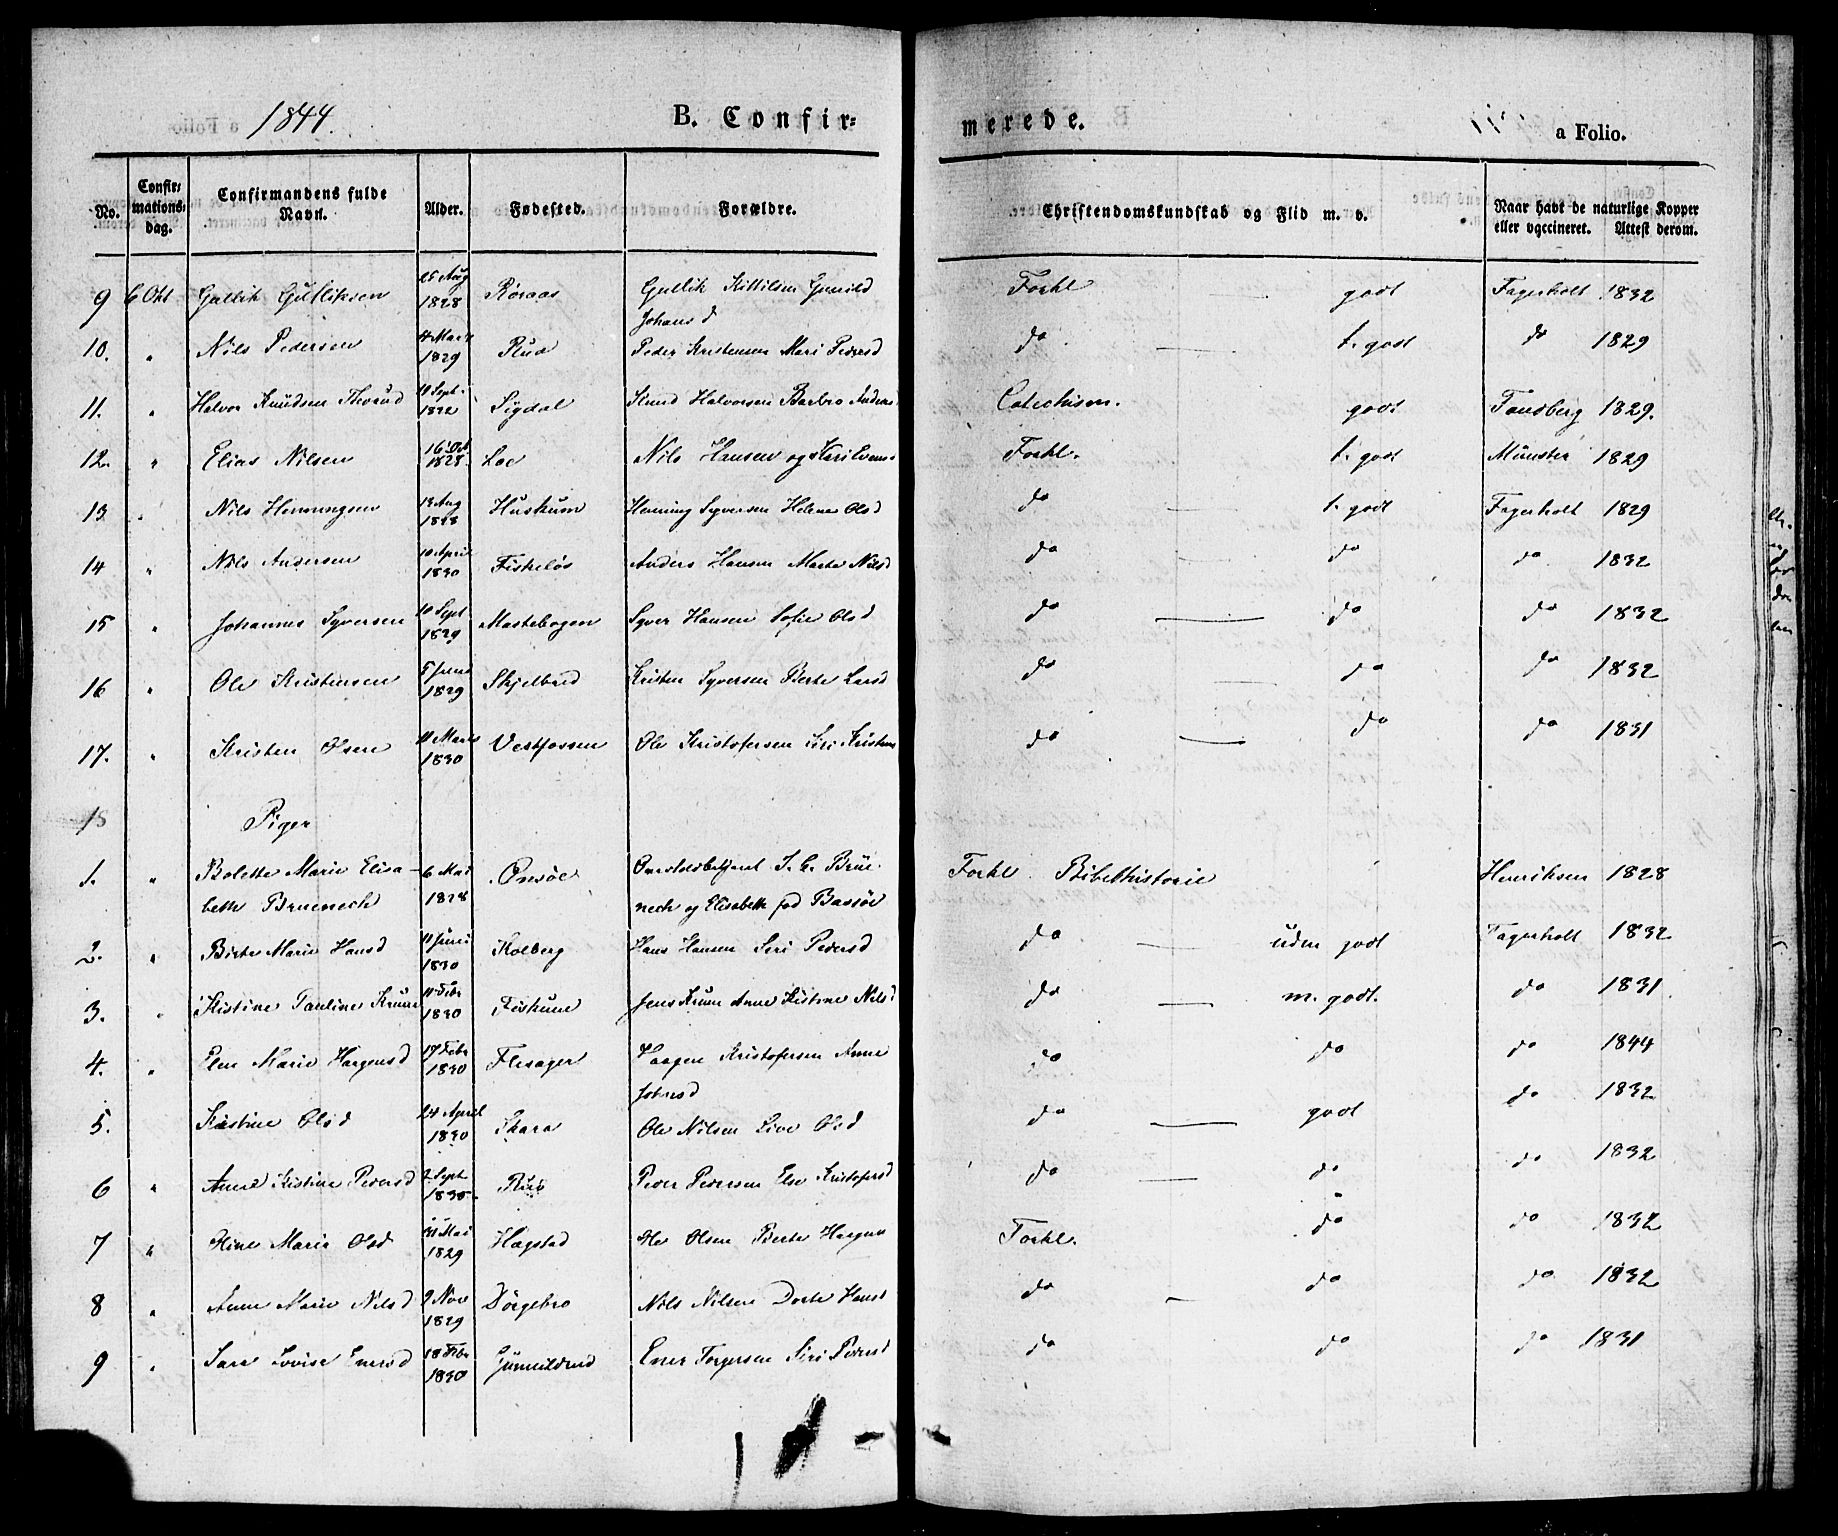 1844.
B. Confir-
merede.
a Folio.
No.
Confir-
mations-
dag.
Confirmandens fulde
Navn.
Alder.
Fødested.
Forældre.
Christendomskundskab og Flid m. v.
Naar havt de naturlige Kopper
eller vaccineret. Attest derom.
9 6 Okt Gullik Gulliksen 25 Aug 1828 Røraas Gullik Kittilsen Gunild Johansd Forkl godt Fagerholt 1832
10. " Nils Pedersen 4 Marts 1829 Rud Peder Kristensen Mari Pedersd do — t. godt do 1829
11. " Halvor Knudsen Thorud Sept. Sigdal Knud Halvorsen Barbro Anders Catechism. godt Tandberg 1829.
12. " Elias Nilsen 16 Okt 1828. Loe Nils Hansen og Forkl. t. godt Münster 1829
13 " Nils Henningsen 13 Aug 1828 Huskum Henning Syversen Helene Olsd do t. godt Fagerholt 1829
14 " Nils Andersen 10 April 1830 Fiskeløs Anders Hansen Marte Nilsd do — do do 1832
15 " Johannes Syversen 10 Sept 1829 Mastebogen Syver Hansen Sofie Olsd do — do do 1832
16 " Ole Kristensen 5 Juni 1829 Skjelbred Kristen Syversen Berte Larsd do — do do 1832
17. " Kristen Olsen 11 Marts 1830 Vestfossen Ole Kristofersen Siri Kristens do — do do 1831
Piger
1. " Bolette Marie Elisa- 6 Mai 1828 Onsøe J. C. Brue- Forkl Bibelhistorie Henriksen 1828
beth Bruenech nech og Elisabeth fød Bassøe
2. " Birte Marie Hansd 11 Juni 1830 Kolberg Hans Hansen Siri Pedersd do — godt Fagerholt 1832
3. " Kistine Pauline Krum 11 Febr 1830 Fiskum Jens Krum Anne Kistine Nilsd do — m. godt. do 1831
4. " Elen Marie Hagensd 17 Febr 1830 Flesager Haagen Kristofersen Anne Johnsd do do do 1844
5. Kistine Olsd 24 April 1830 Skara Ole Nilsen Live Olsd do — godt do 1832
6 " Anne Kistine Pedersd 2 Sept Rud Peder Pedersen Else Kristofersd do — do do 1832
7 " Oline Marie Olsd Mai 1829 Hagstad Ole Olsen Berte Hagens Forkl. do do 1832
8 " Anne Marie Nilsd 2 Nov 1829 Dørgebro Nils Nilsen Dorte Hansd do — do do 1832
9 " Sare Lovise Enersd 18 Febr 1830 Gunnildrud Ener Torgersen Siri Pedersd do do do 1831